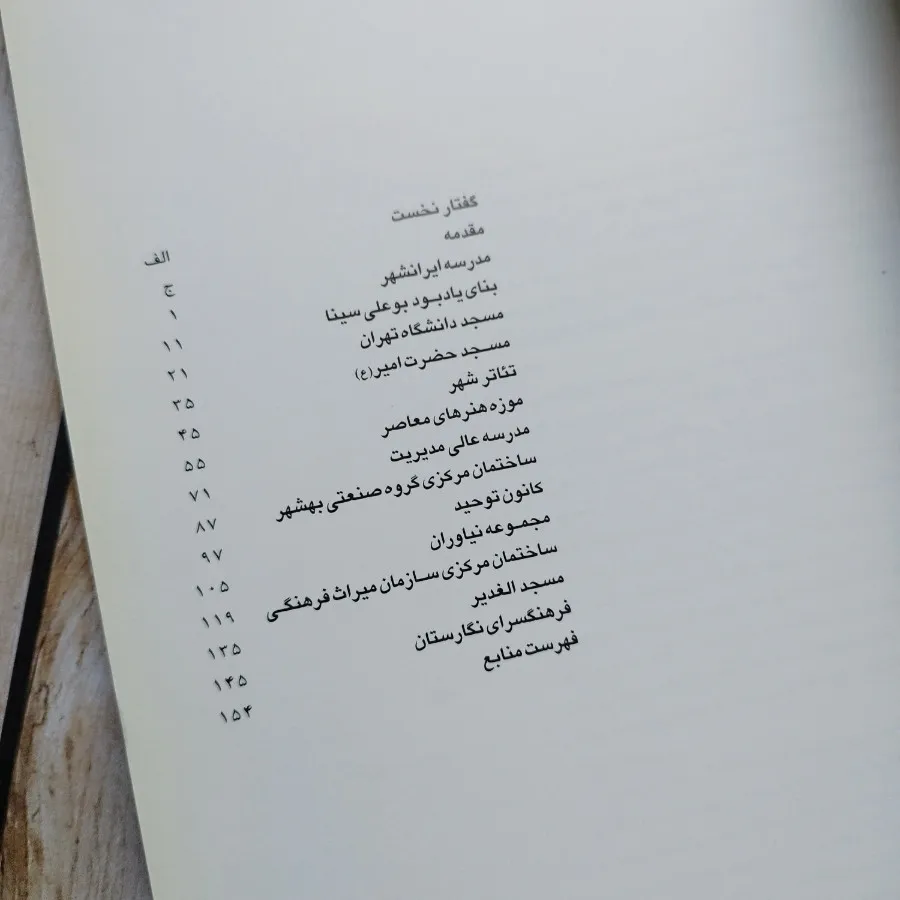 گفتار نخست الف
مقدمه ج
مدرسه ایرانشهر ۱
بنای یادبود بوعلی سینا ۱۱
مسجد دانشگاه تهران ۲۱
مسجد حضرت امیر(ع) ۳۵
تئاتر شهر ۴۵
موزه هنرهای معاصر ۵۵
مدرسه عالی مدیریت ۷۱
ساختمان مرکزی گروه صنعتی بهشهر ۸۷
کانون توحید ۹۷
مجموعه نیاوران ۱۰۵
ساختمان مرکزی سازمان میراث فرهنگی ۱۱۹
مسجد الغدیر ۱۳۵
فرهنگسرای نگارستان ۱۴۵
فهرست منابع ۱۵۴